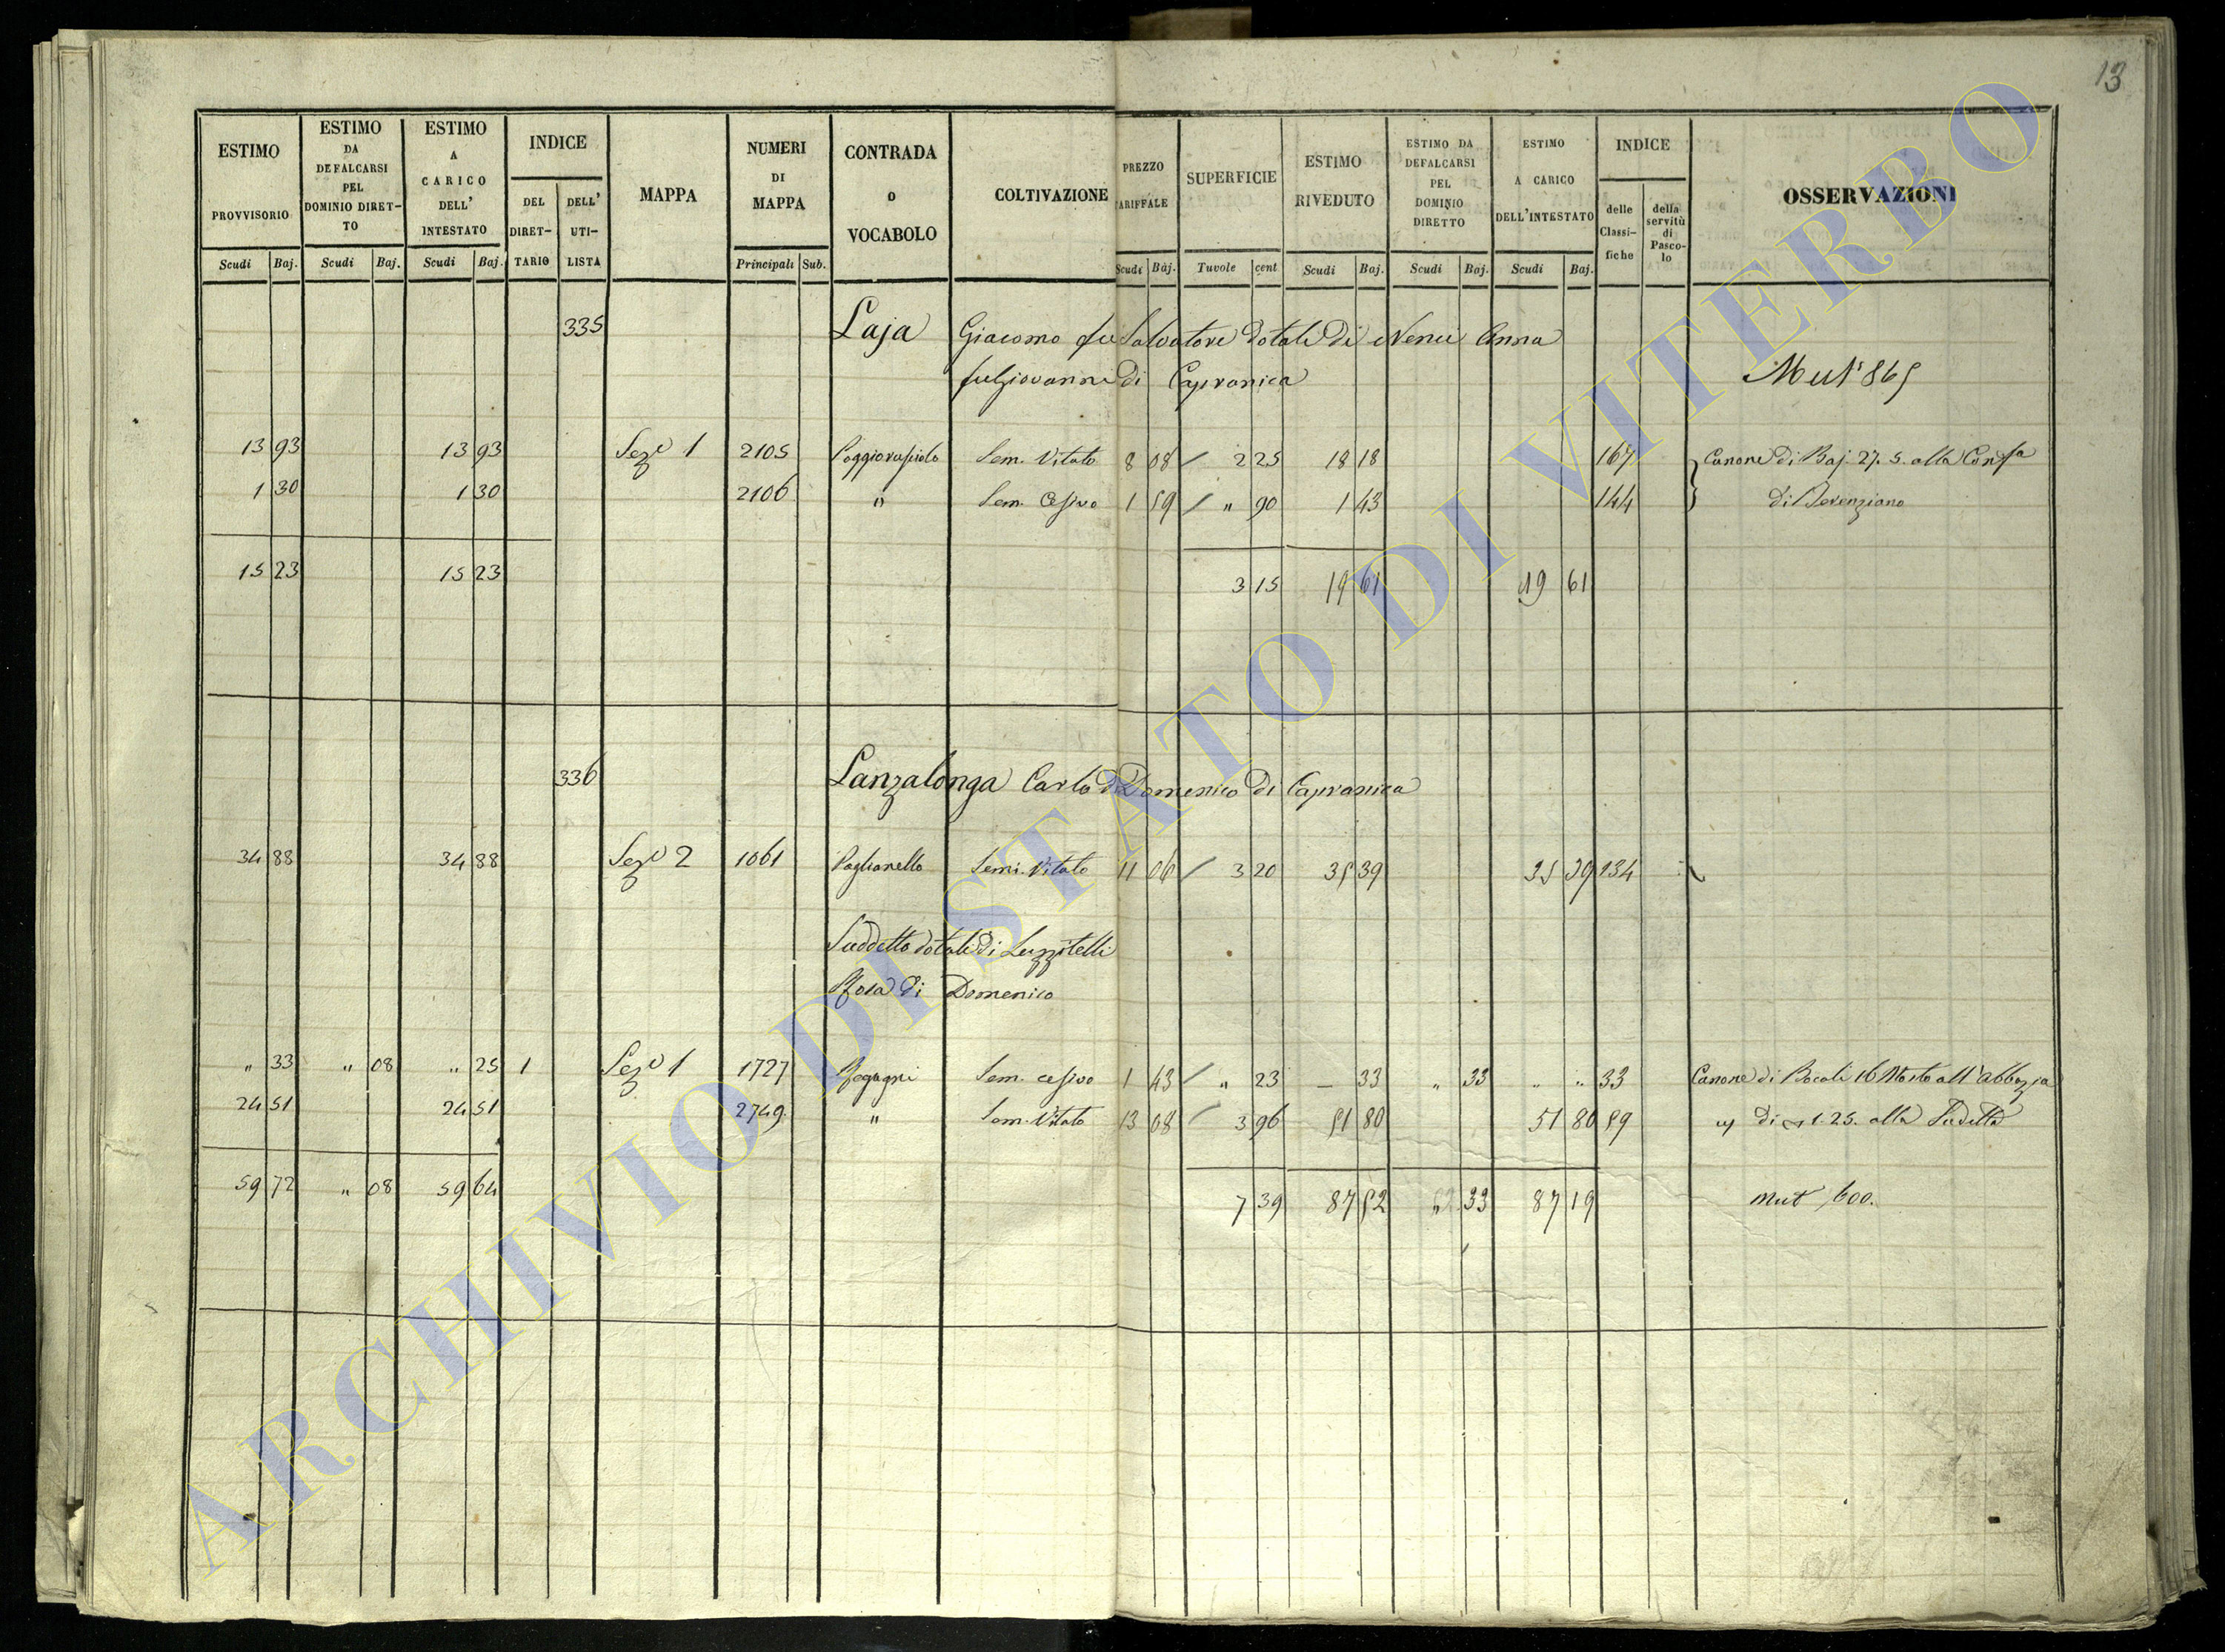 13
ESTIMO PROVVISORIO
ESTIMO DA DEFALCARSI PEL DOMINIO DIRET-TO
ESTIMO A CARICO DELL' INTESTATO
INDICE
DEL DIRET-TARIO
DELL' UTI-LISTA
MAPPA
NUMERI DI MAPPA
CONTRADA O VOCABOLO
COLTIVAZIONE
PREZZO TARIFFALE
SUPERFICIE
ESTIMO RIVEDUTO
ESTIMO DA DEFALCARSI PEL DOMINIO DIRETTO
ESTIMO A CARICO DELL'INTESTATO
INDICE
delle Classi-fiche
della servitù di Pasco-lo
OSSERVAZIONI
Scudi Baj. Scudi Baj. Scudi Baj. Principali Sub. Scudi Baj. Tavole cent Scudi Baj. Scudi Baj. Scudi Baj.
335 Laja Giacomo fu Salvatore dotali di Nenci Anna
fu Giovanni di Capranica
Mut 865
13 93 13 93 Sez 1 2105 Sem. Vitato 8 08 / 2 25 18 18 167 Canone di Baj. 27. 5. alla
1 30 1 30 2106 " Sem. Cesivo 1 59 / " 90 1 43 144 di
15 23 15 23 3 15 19 61 19 61
336 Lanzalonga Carlo di Domenico di Capranica
34 88 34 88 Sez 2 1061 Paglianello Semi. Vitato 11 06 / 3 20 35 39 35 39 134
Suddetto dotali di Luzzitelli
Rosa di Domenico
" 33 " 08 " 25 1 Sez 1 1727 Sem. cesivo 1 43 / " 23 — 33 " 33 " " 33 Canone di Bocali 16 Mosto all'abbazia
24 51 24 51 2749 " Sem. Vitato 13 08 / 3 96 51 80 51 80 59 di 1. 25. alla Sudetta
59 72 " 08 59 64 7 39 87 52 33 87 19 Mut 600.
ARCHIVIO DI STATO DI VITERBO